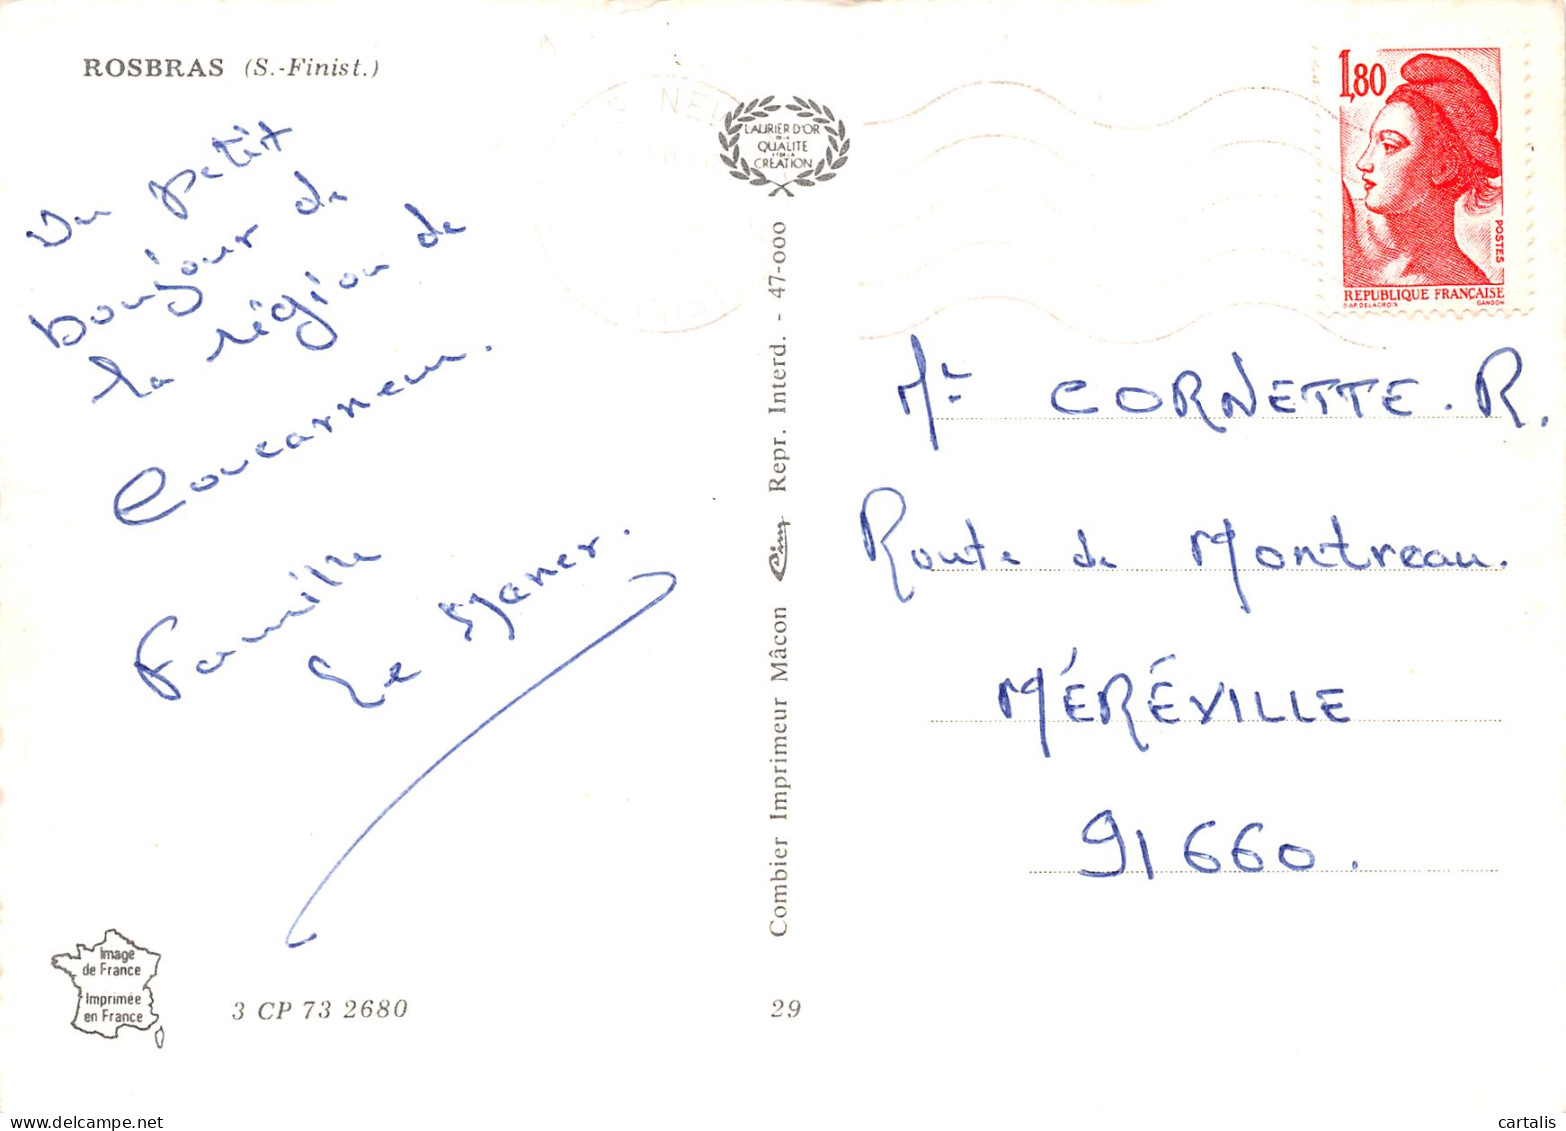 ROSBRAS (S.-Finist.)
Un petit
bonjour de
la région de
Concarneau.
Famille
Le Maner.
Image
de France
Imprimée
en France
3 CP 73 2680
29
LAURIER D'OR
DE LA
QUALITE
ET DE LA
CRÉATION
Combier Imprimeur Mâcon Cim Repr. Interd. - 47-000
1,80
POSTES
RÉPUBLIQUE FRANÇAISE
D'AP. DELACROIX GANDON
Mr CORNETTE. R.
Route de Montreau.
MÉRÉVILLE
91660.
cartalis